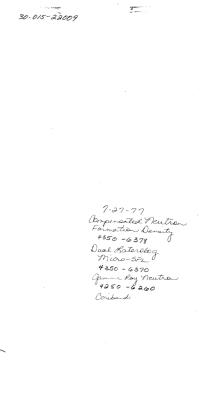 30-015-22009
7-27-77
Compensated Neutron
Formation Density
4350-6378
Dual Laterolog
Micro-SFL
4250-6370
Gamma Ray Neutron
4250-6260